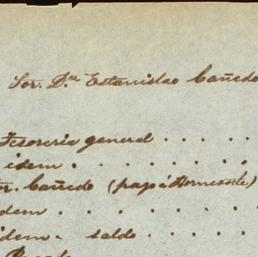 Sor. Dn. Estanislao Cañedo
Tesoreria general . . . . .
idem . . . . . . .
Sr. Cañedo (pagó á Hornconte)
idem . . . . . . .
idem . saldo . . . . .